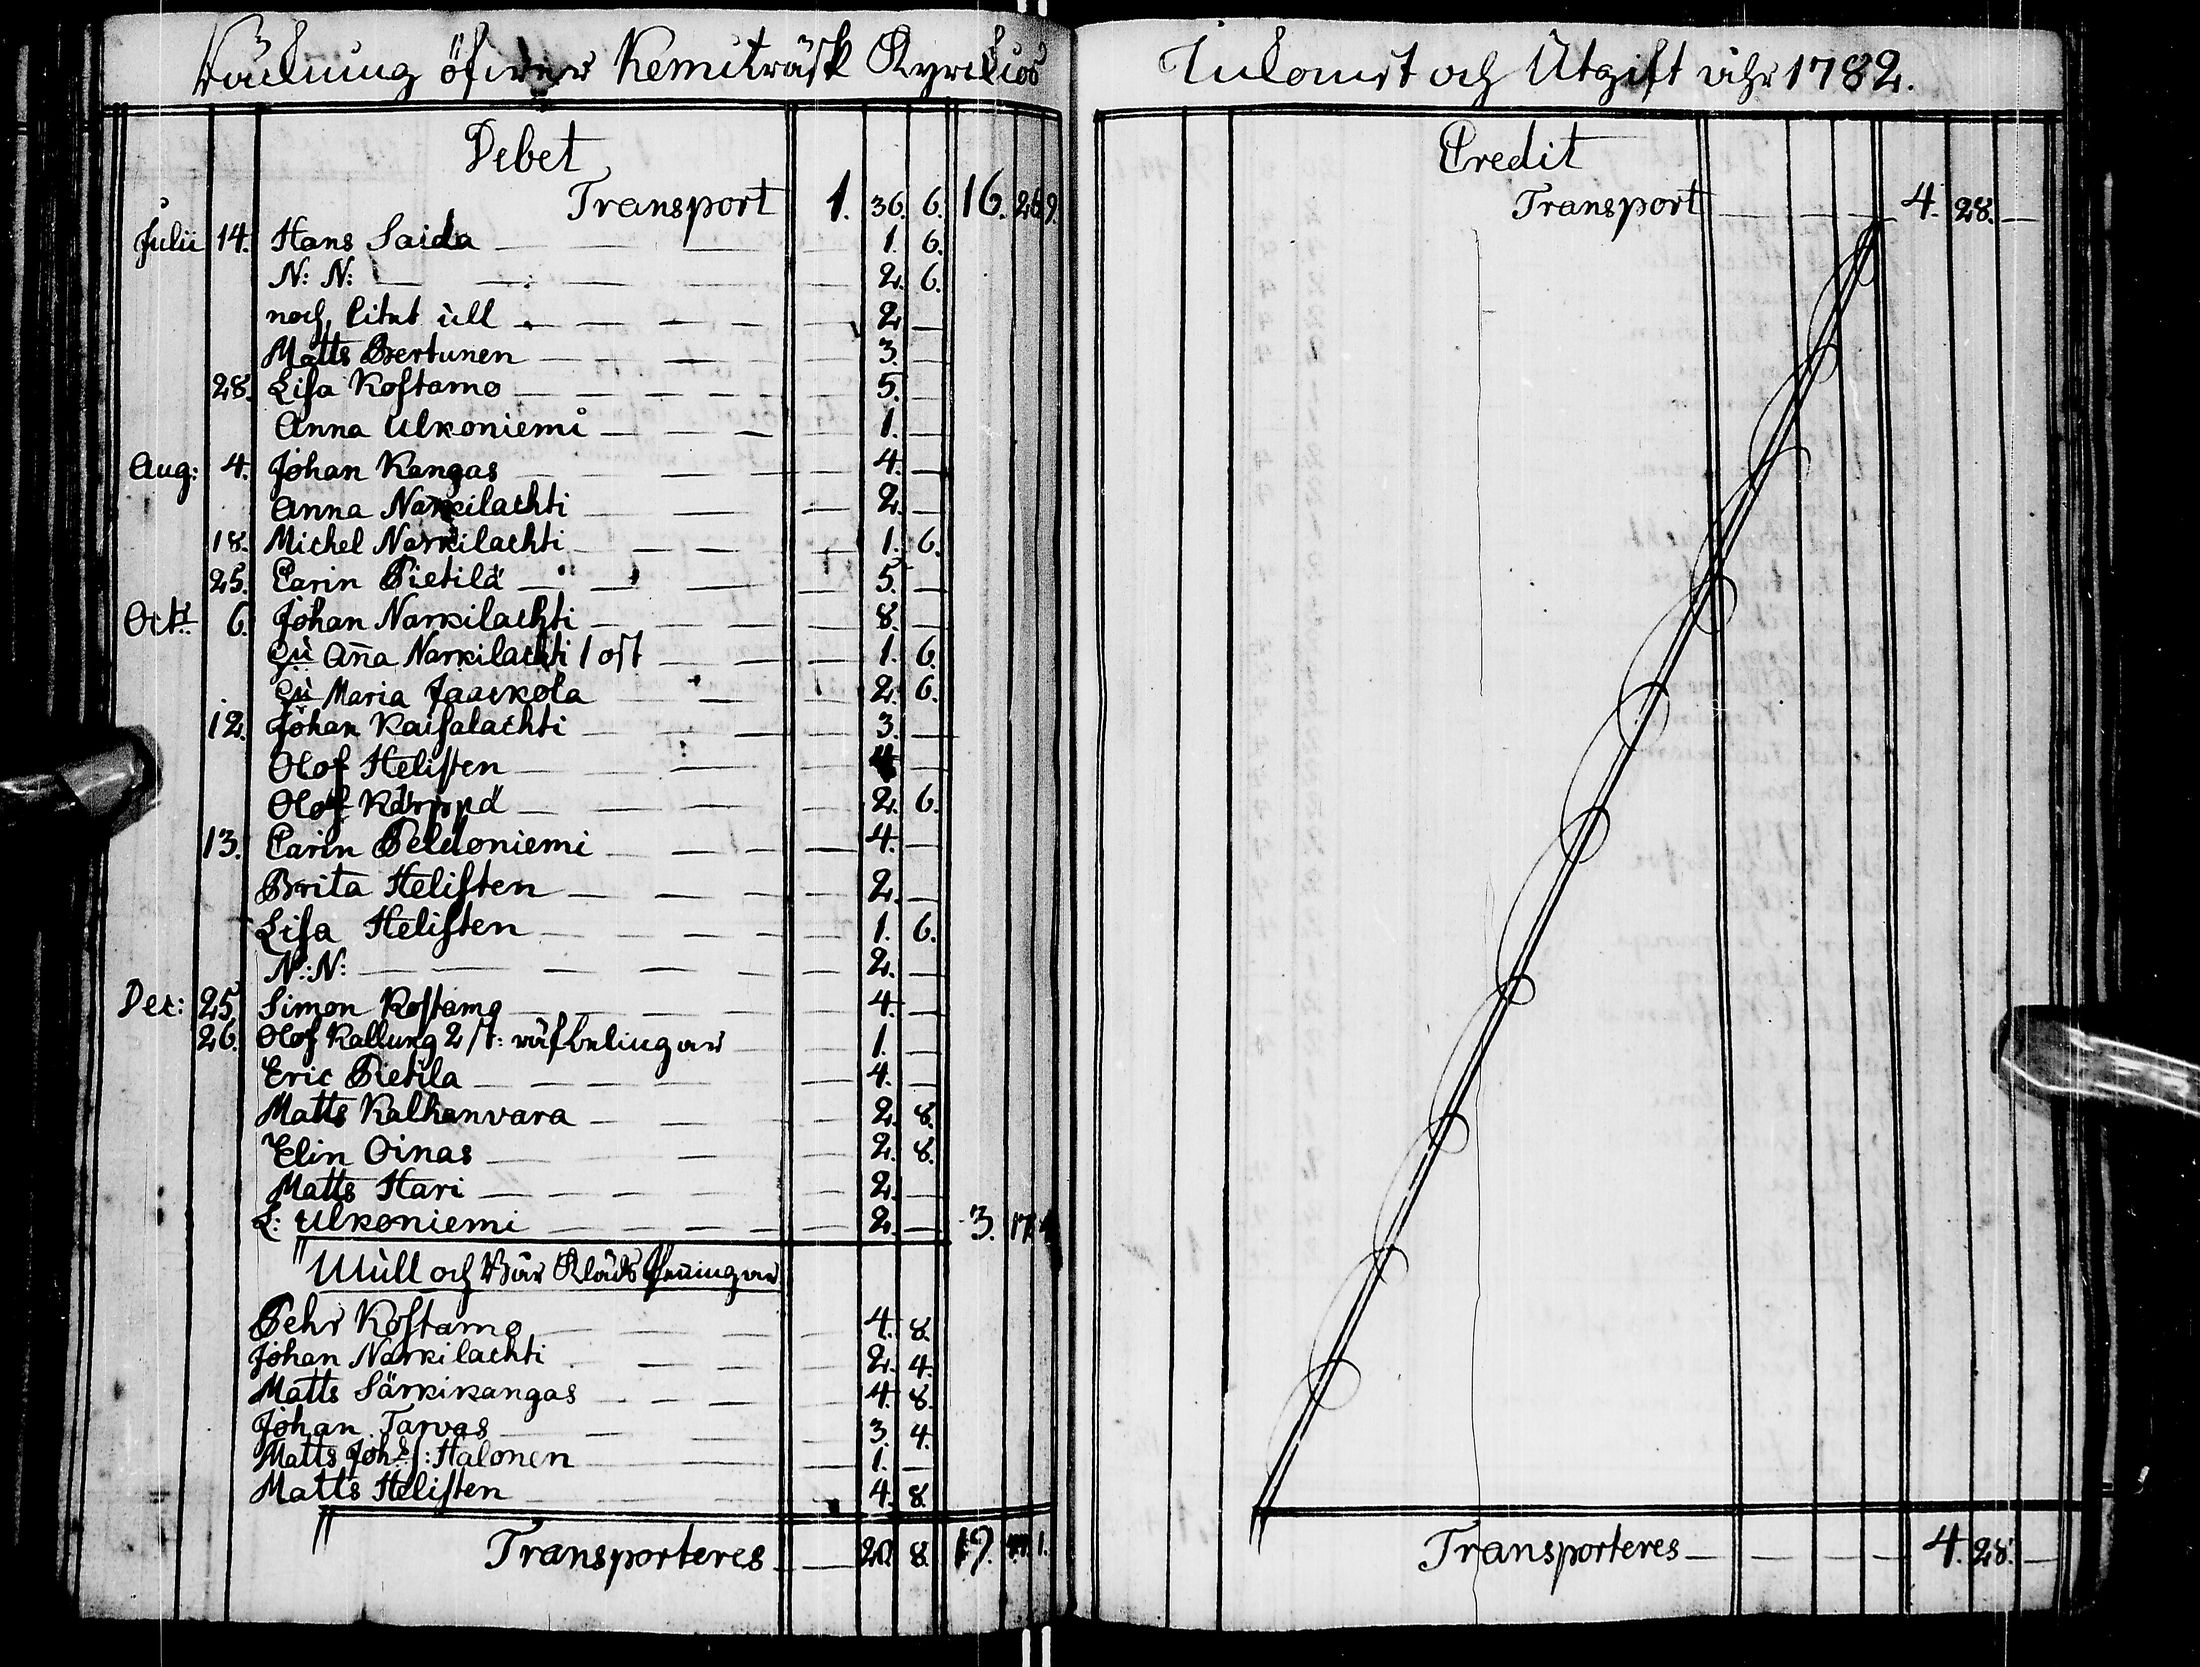 Räkning öfwer Kemiträsk Kyrckios
Debet
Transport 1. 36. 6. 16. 26 9.
Julii 14. Hans Saida 1. 6.
N: N: 2. 6.
noch litet ull 2 —
Matts Bertunen 3. —
28. Lisa Kostamo 5. —
Anna Ulkoniemi 1. —
Aug: 4. Johan Kangas 4. —
Anna Narkilachti 2. —
18. Michel Narkilachti 1. 6.
25. Carin Pietilä 5. —
Oct: 6. Johan Narkilachti 8. —
Anna Narkilachti 1 ost 1. 6.
Maria Jaackola 2. 6.
12. Johan Kaisalachti 3. —
Olof Helisten 4 —
Olof Kärppä 2. 6.
13. Carin Peldoniemi 4. —
Brita Helisten 2. —
Lisa Helisten 1. 6.
N: N: 2. —
Dec: 25. Simon Kostamo 4. —
26. Olof Kallung 2 st: räfbelingar 1. —
Eric Pietila 4. —
Matts Kalhanvara 2. 8.
Elin Oinas 2. 8.
Matts Hari 2. —
L: Ulkoniemi 2. — 3. 17. 4
Wull och Bår Kläds Penningar
Pehr Kostamo 4. 8.
Johan Narkilachti 2. 4.
Matts Särkikangas 4. 8.
Johan Tarvas 3. 4.
Matts Joh: s: Halonen 1. —
Matts Helisten 4. 8.
Transporteres 20. 8. 19. 44. 1.
Inkomst och Utgift åhr 1782.
Credit
Transport 4. 28. —
Transporteres 4. 28. —